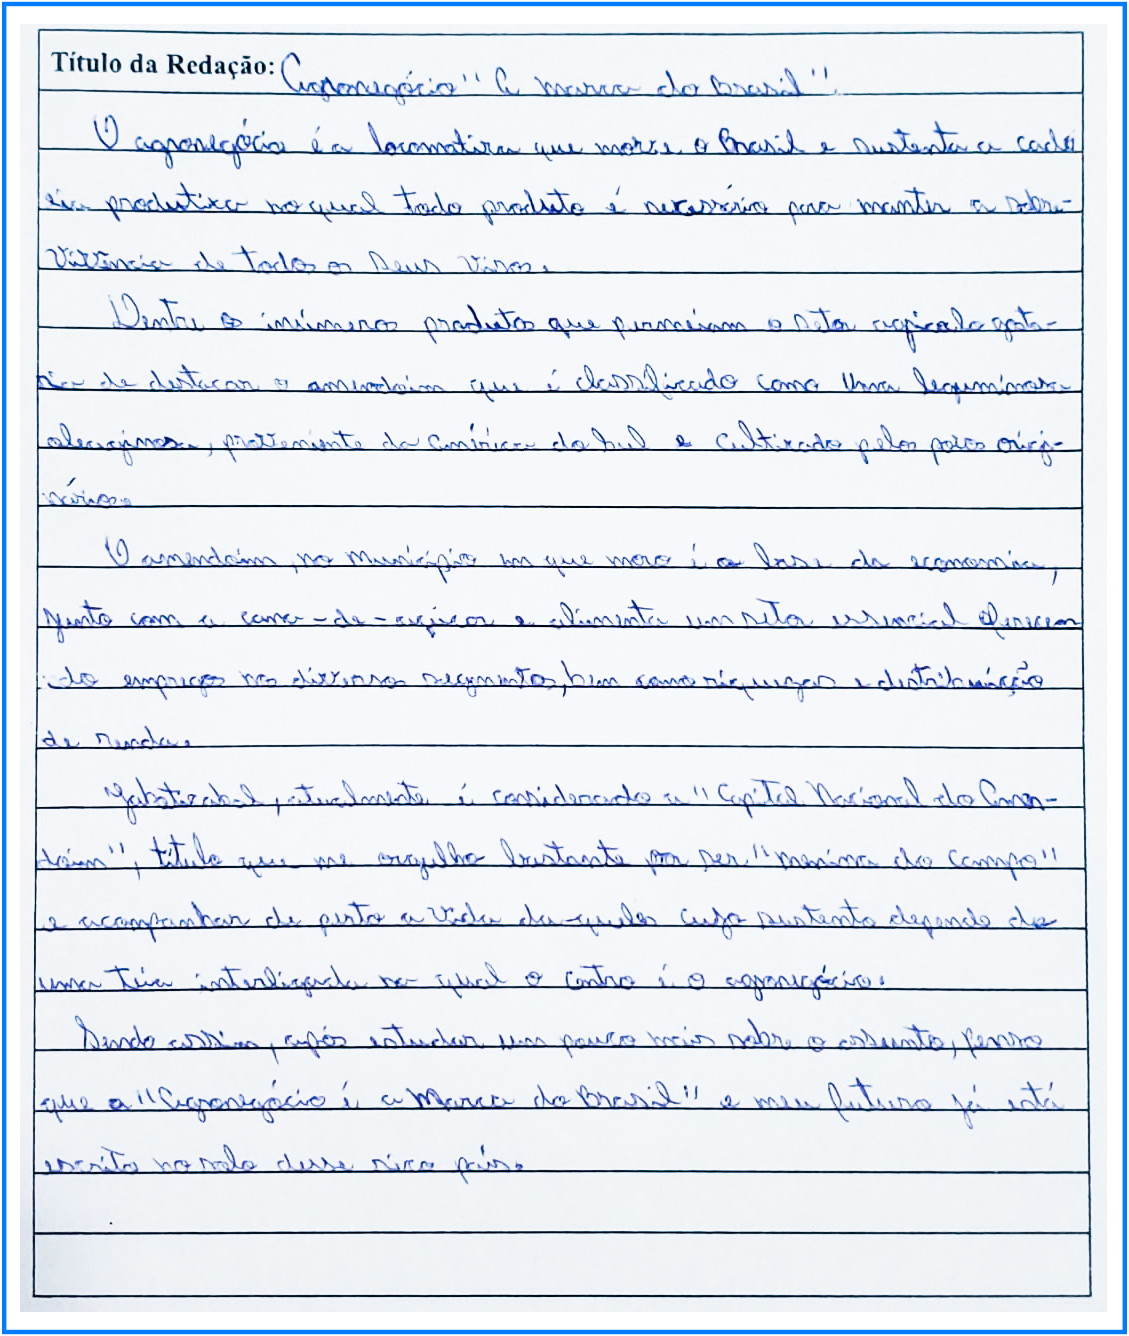 Título da Redação: Agronegócio "A marca do Brasil".
O agronegócio é a locomotiva que move o Brasil e sustenta a cade
eia produtiva no qual todo produto é necessário para manter a sobre-
vivência de todos os seus vivos.
Dentre os inúmeros produtos que permeiam o setor agrícola gosta-
ria de destacar o amendoim que é classificado como uma leguminosa
oleaginosa, proveniente da América do Sul e cultivado pelos povos origi-
nários.
O amendoim, no município em que moro é a base da economia,
junto com a cana-de-açúcar e alimenta um setor essencial oferecen
do empregos nos diversos segmentos, bem como riquezas e distribuição
de renda.
Jaboticabal, atualmente é considerado a "Capital Nacional do Amen-
doim", título que me orgulho bastante por ser "menina do campo"
e acompanhar de perto a vida da-queles cujo sustento depende de
uma teia interligada na qual o centro é o agronegócio.
Sendo assim, após estudar um pouco mais sobre o assunto, penso
que o "Agronegócio é a Marca do Brasil" e meu futuro já está
escrito no solo desse rico país.